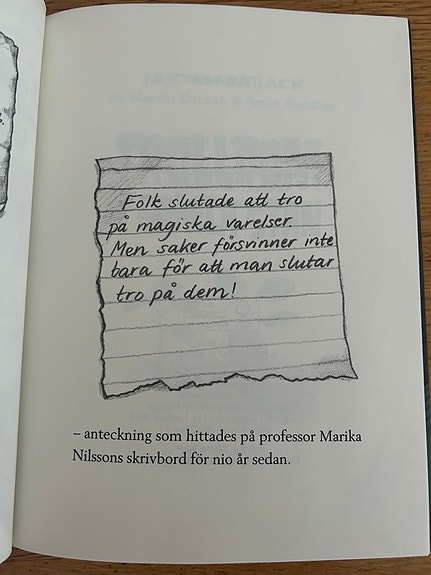 Folk slutade att tro
på magiska varelser.
Men saker försvinner inte
bara för att man slutar
tro på dem!
– anteckning som hittades på professor Marika
Nilssons skrivbord för nio år sedan.